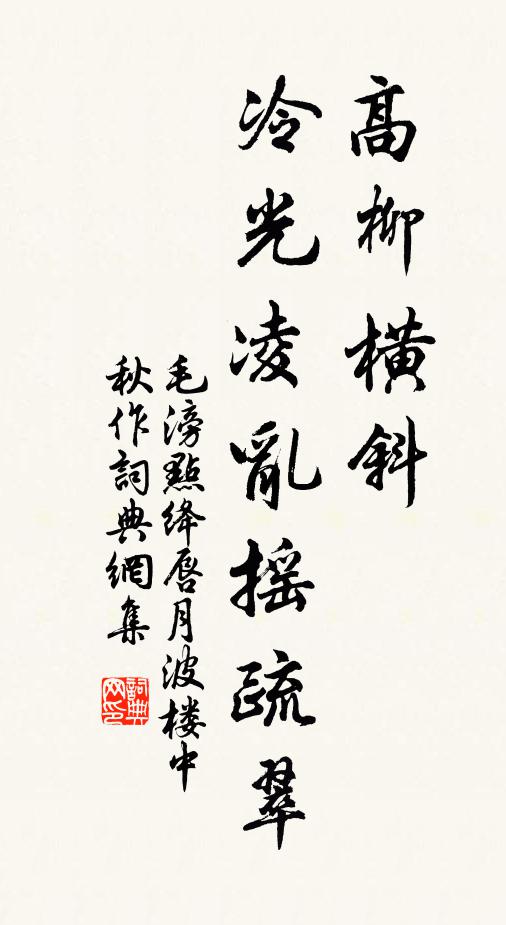 高柳橫斜
冷光凌亂搖疏翠
毛滂點絳唇月波楼中
秋作詞典網集
詞典
网印